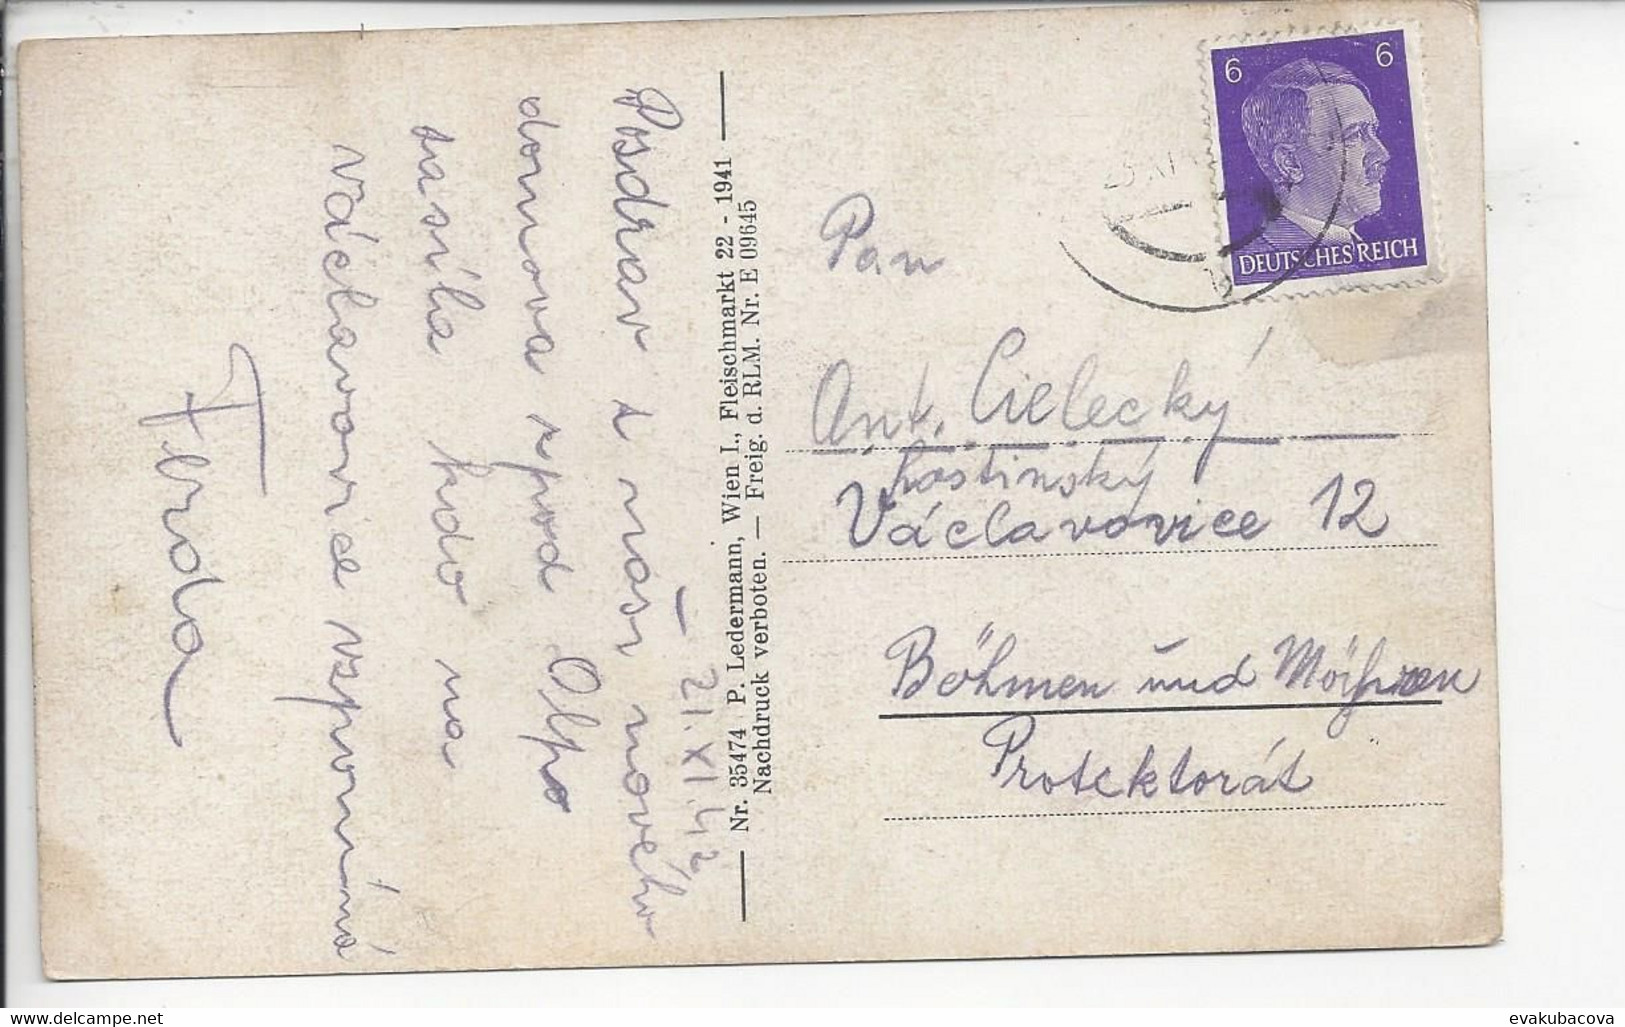 Pozdrav z nášr nového
domova zpod Alp
zasílá kdo na
Václavovice vzpomíná
Ferda
21. XI. 42
Nr. 35474 P. Ledermann, Wien I., Fleischmarkt 22 - 1941
Nachdruck verboten. — Freig. d. RLM. Nr. E 09645
6 6
DEUTSCHES REICH
Pan
Ant. Cielecký
hostinský
Václavovice 12
Böhmen und Mähren
Protektorát
www.delcampe.net
evakubacova